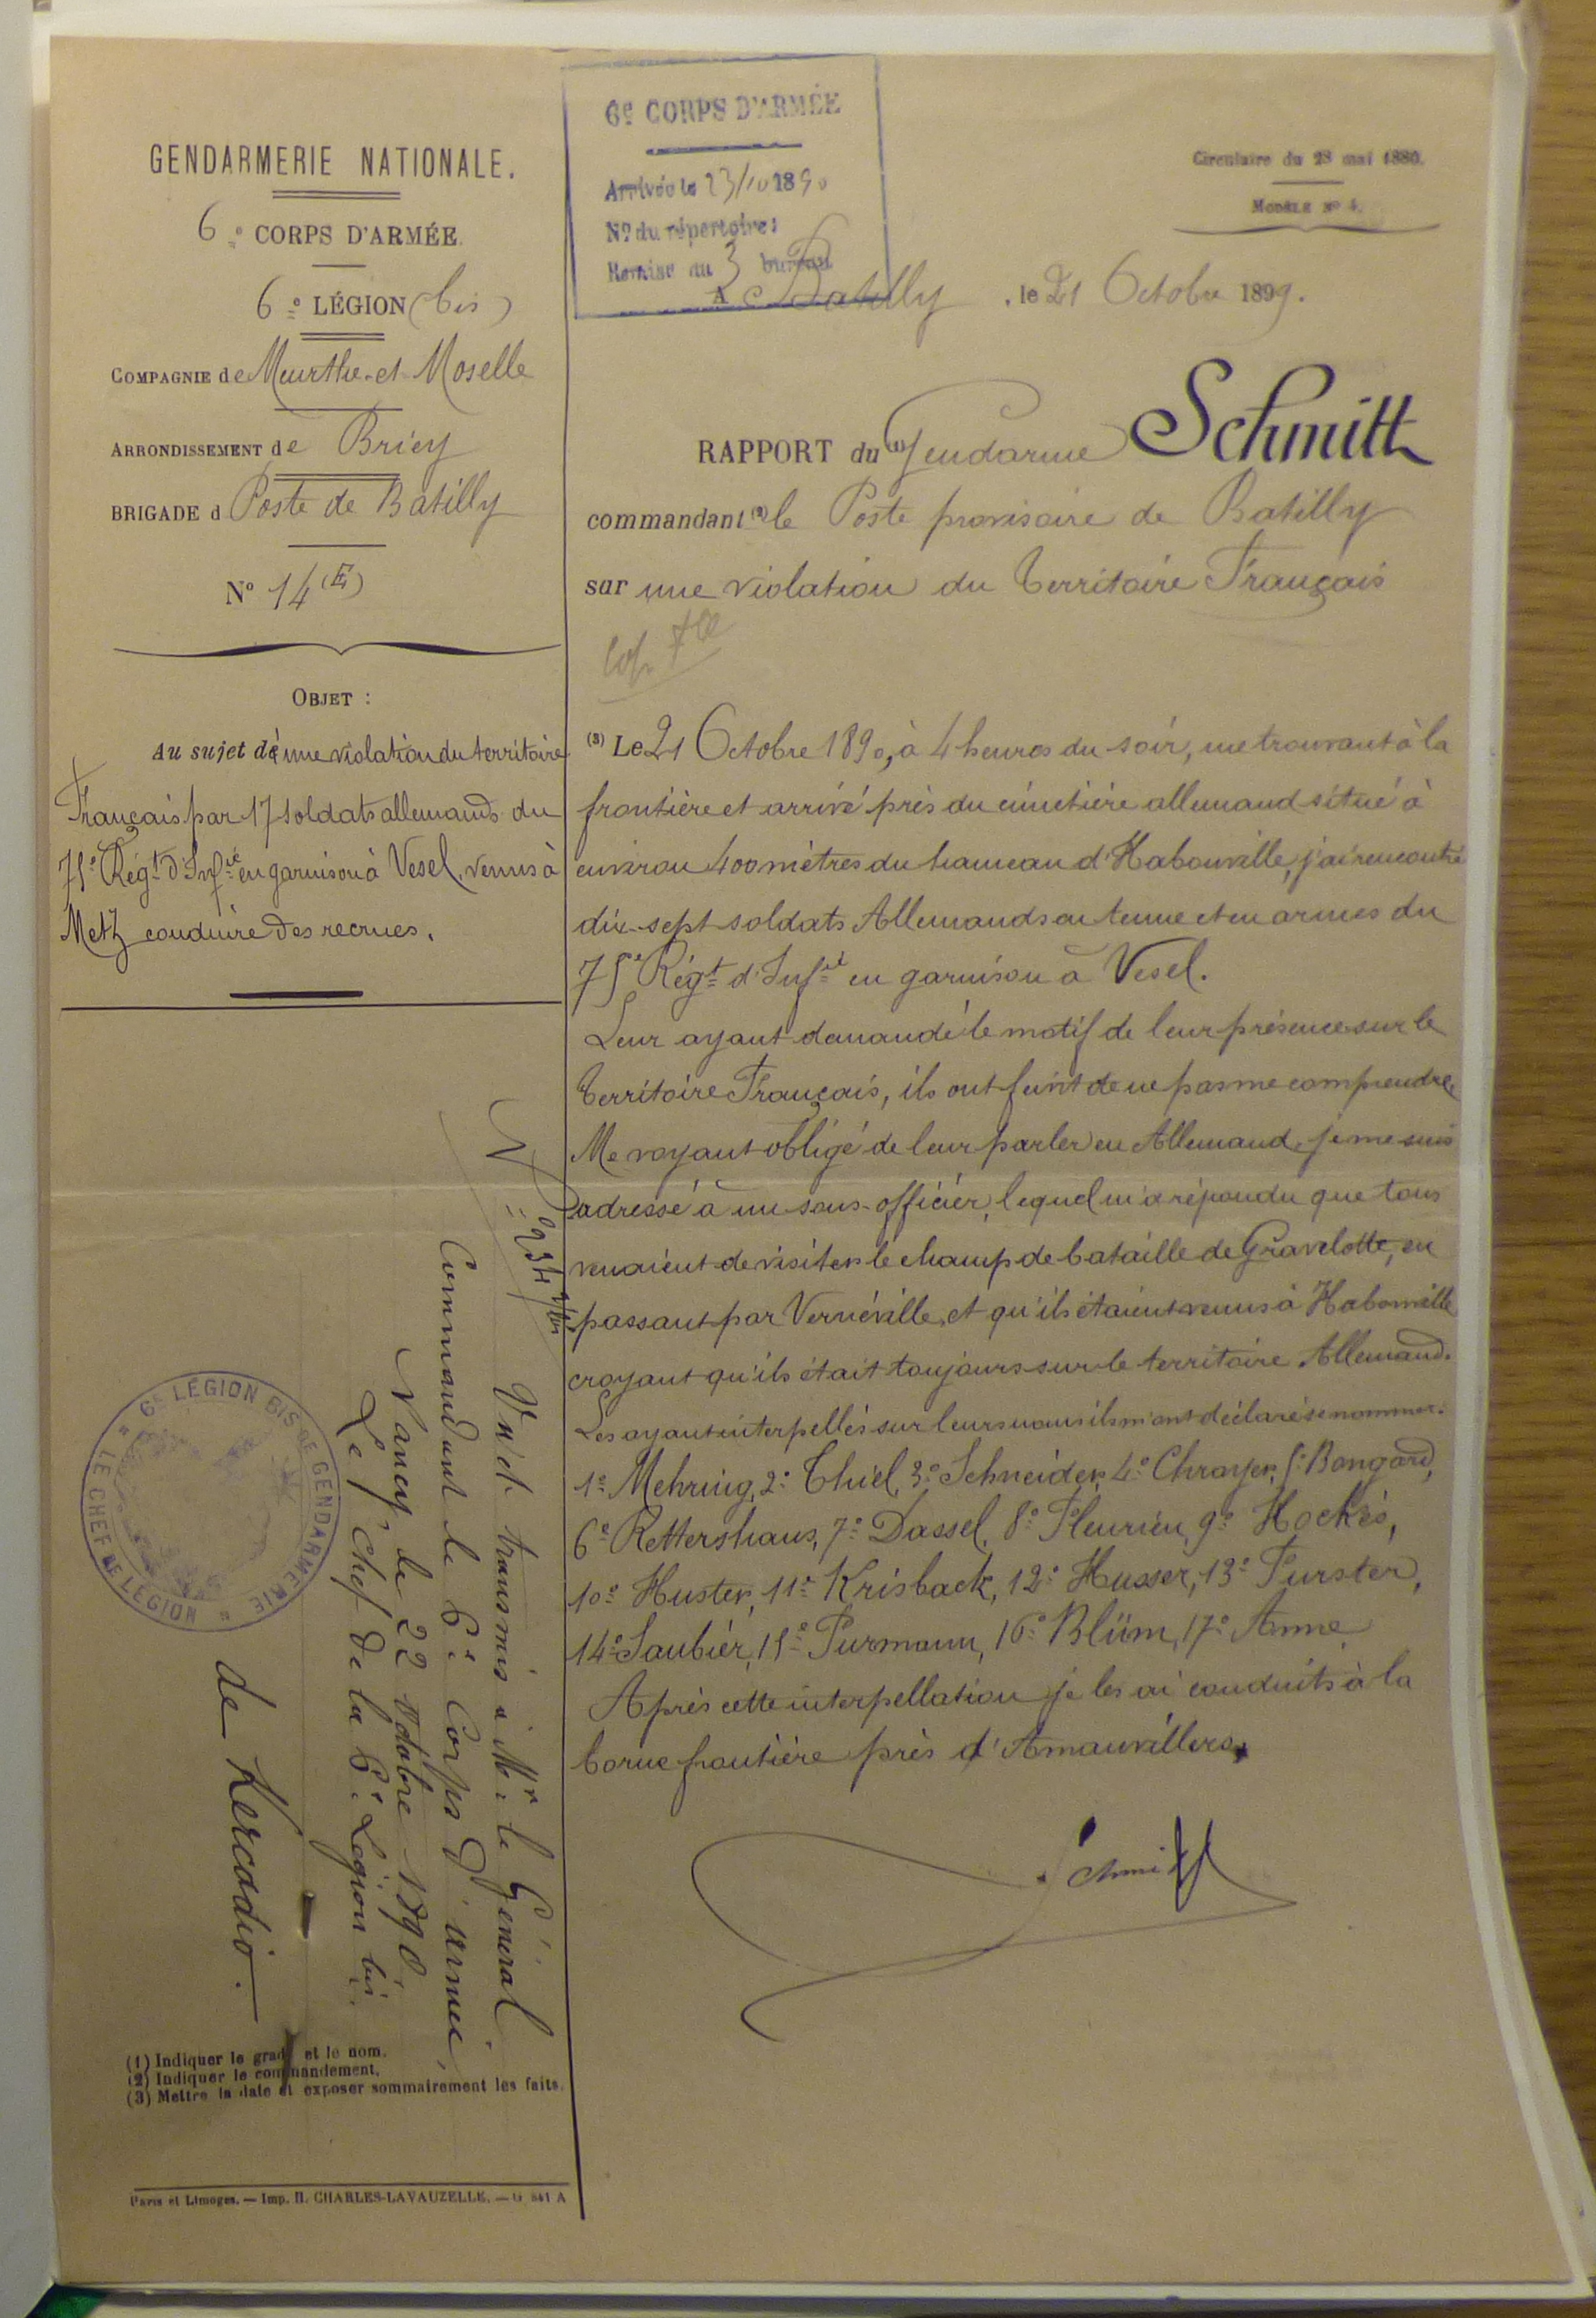 GENDARMERIE NATIONALE.
6e CORPS D'ARMÉE.
6e LÉGION (bis)
COMPAGNIE de Meurthe-et-Moselle
ARRONDISSEMENT de Briey
BRIGADE d Poste de Batilly
No 14 (E)
OBJET :
Au sujet d'une violation du territoire
Français par 17 soldats allemands du
75e Régt d'Infie en garnison à Vesel, venus à
Metz conduire des recrues.
6e CORPS D'ARMÉE
Arrivée le 23/10 1890
No du répertoire :
Remise au 3 bureau
Circulaire du 28 mai 1880.
MODÈLE No 4.
A Batilly, le 21 Octobre 1890.
RAPPORT du (1) Gendarme Schmitt
commandant (2) le Poste provisoire de Batilly
sur une violation du Territoire Français
(3) Le 21 Octobre 1890, à 4 heures du soir, me trouvant à la
frontière et arrivé près du cimetière allemand situé à
environ 400 mètres du hameau d'Habouville, j'ai rencontré
dix-sept soldats Allemands en tenue et en armes du
75e Régt d'Infie en garnison à Vesel.
Leur ayant demandé le motif de leur présence sur le
Territoire Français, ils ont feint de ne pas me comprendre
Me voyant obligé de leur parler en Allemand, je me suis
adressé à un sous-officier, lequel m'a répondu que tous
venaient de visiter le champ de bataille de Gravelotte, en
passant par Vernéville, et qu'ils étaient venus à Habonville
croyant qu'ils était toujours sur le territoire Allemand.
Les ayant interpellés sur leurs noms ils m'ont déclaré se nommer:
1e Mehring, 2e Thiel, 3e Schneider, 4e Chrayer, 5e Bongard,
6e Rettershaus, 7e Dassel, 8e Fleurien, 9e Hockes,
10e Huster, 11e Krisback, 12e Husser, 13e Furster,
14e Saubier, 15e Purmann, 16e Blüm, 17e Anne
Après cette interpellation je les ai conduits à la
borne frontière près d'Amauvillers.
Schmitt
No 234
Vu et transmis à Mr le Général
Commandant le 6e Corps d'armée,
Nancy le 22 8tobre 1890.
Le Chef de la 6e Légion bis
de Kercadio.
6e LÉGION BIS DE GENDARMERIE
LE CHEF DE LÉGION
(1) Indiquer le grade et le nom.
(2) Indiquer le commandement.
(3) Mettre la date et exposer sommairement les faits.
Paris et Limoges. — Imp. H. CHARLES-LAVAUZELLE. — G 841 A